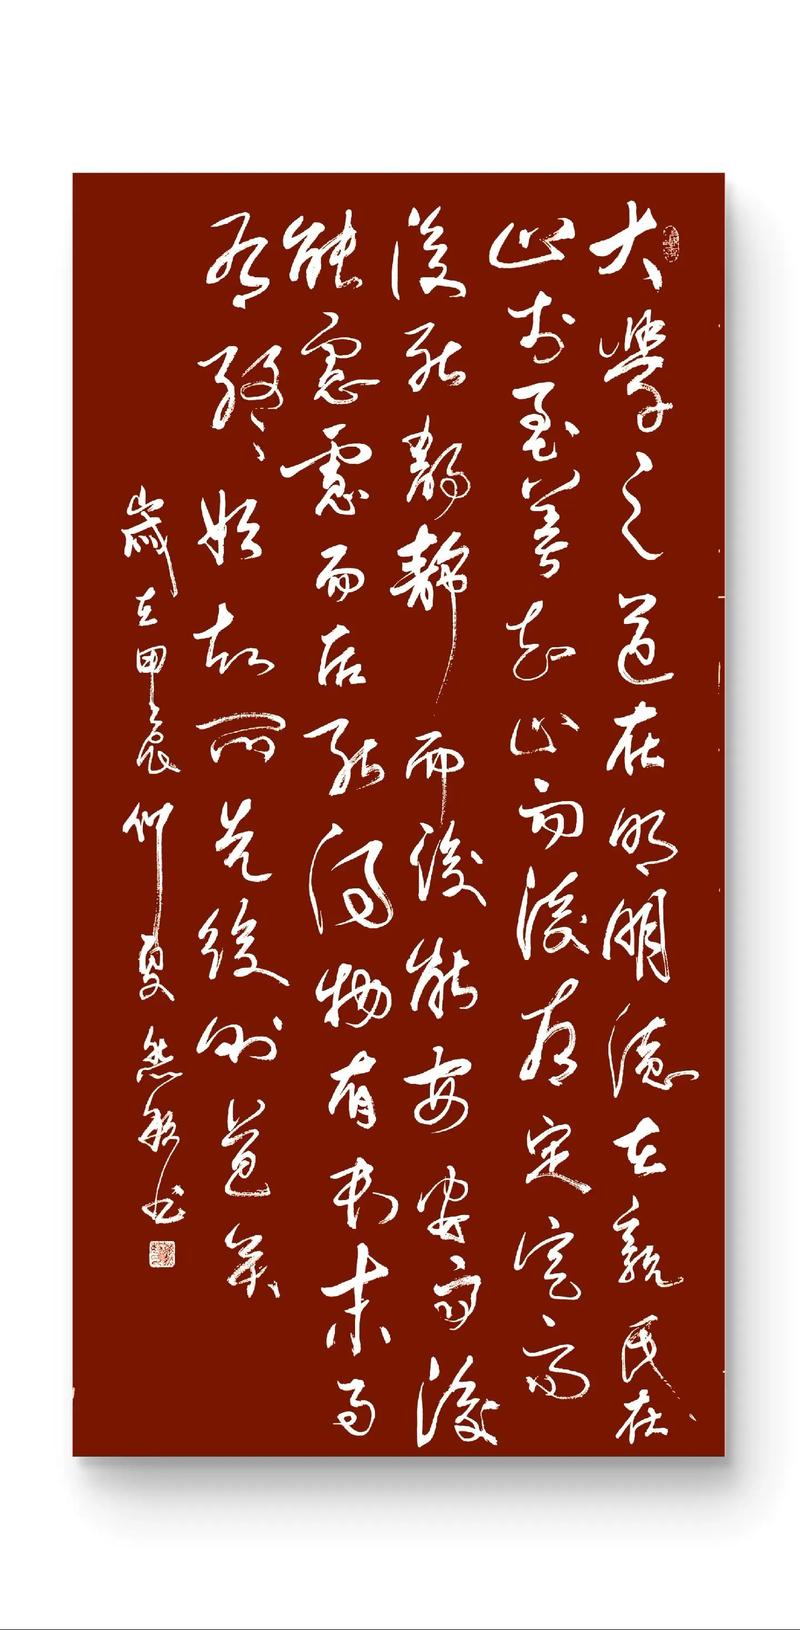 大學之道在明明德在親民在
止於至善知止而後有定定而
後能靜靜而後能安安而後
能慮慮而后能得物有本末事
有終始知所先後則道矣
歲在甲辰仲夏書